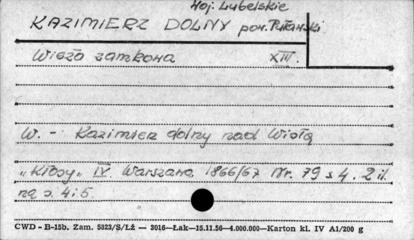 Woj. Lubelskie
KAZIMIERZ DOLNY pow. Puławski
Wieża zamkowa XIII.
W. - Kazimierz dolny nad Wisłą
„Kłosy" IV. Warszawa 1866/67 Nr. 79 s 4. 2 il.
na s. 4 i 5.
CWD - B-15b. Zam. 5823/S/Lż — 3016—Łak—15.11.56—4.000.000—Karton kl. IV A1/200 g